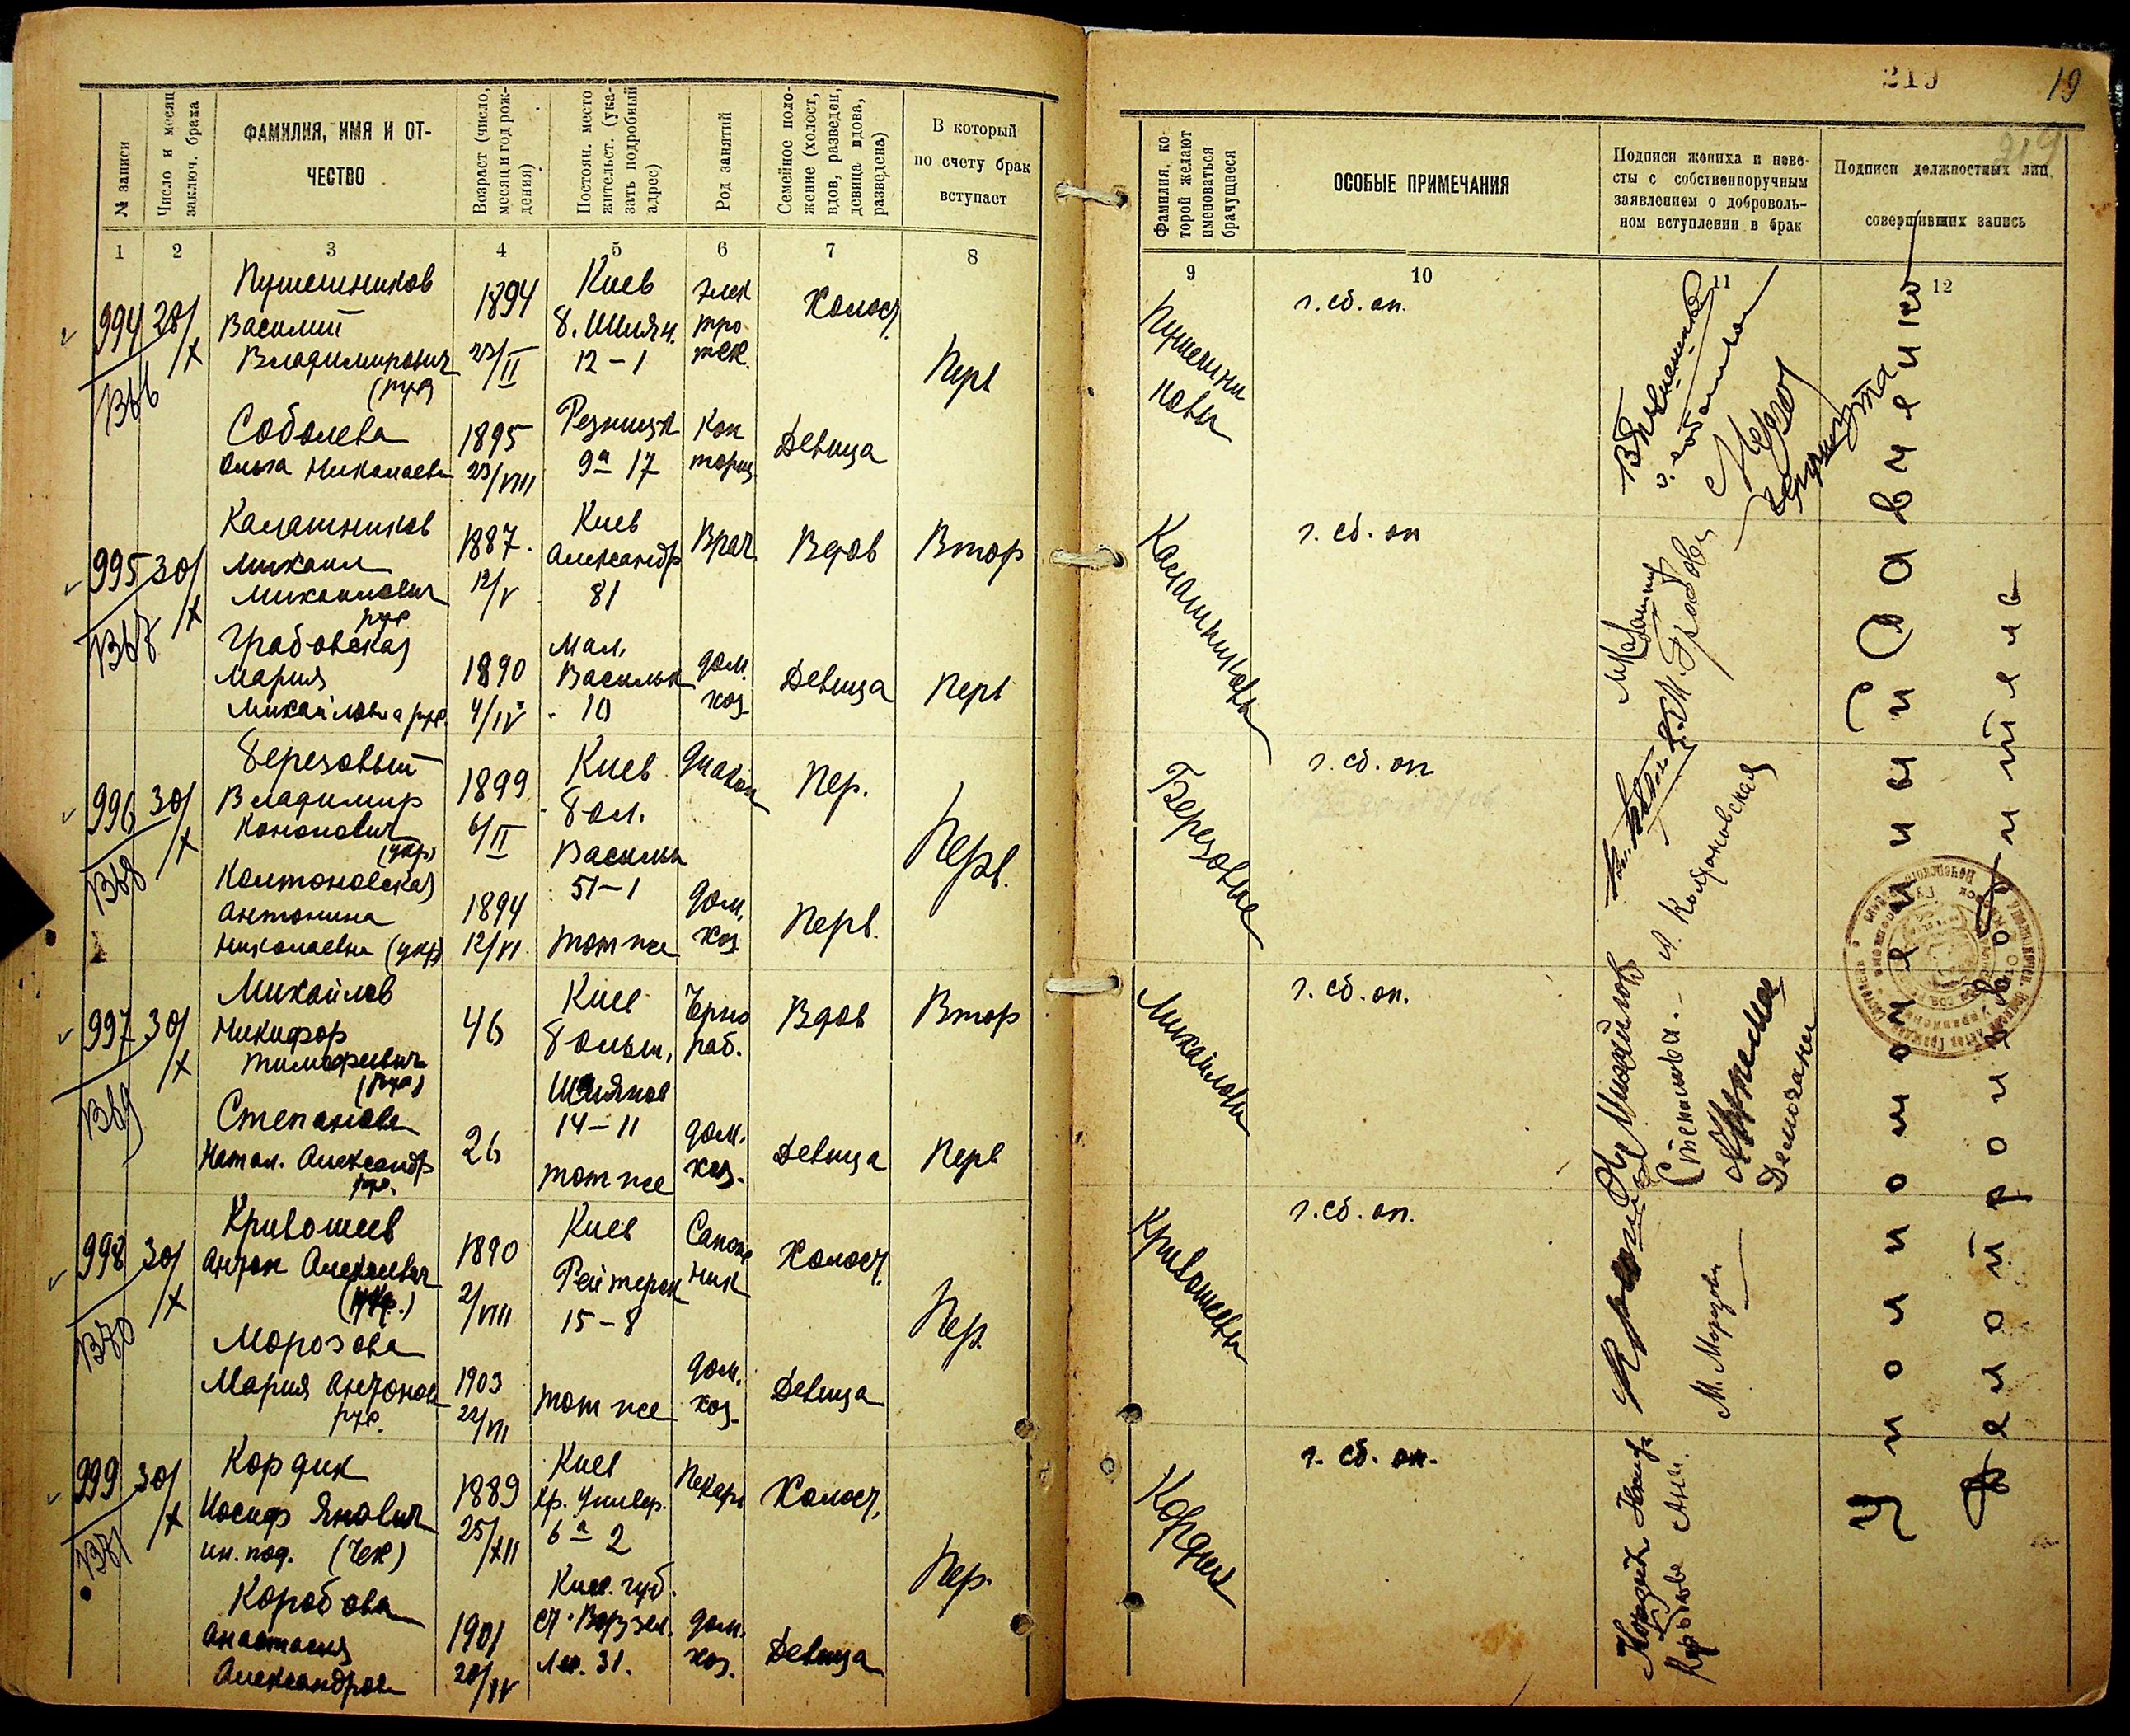 № записи
Число и месяц
заключ. брака
ФАМИЛИЯ, ИМЯ И ОТ-
ЧЕСТВО
Возраст (число,
месяц и год рож-
дения)
Постоян. место
жительст. (ука-
зать подробный
адрес)
Род занятий
Семейное поло-
жение (холост,
вдов, разведен,
девица вдова,
разведена)
В который
по счету брак
вступает
1 2 3 4 5 6 7 8
994 28/X
1366
Пушешников
Василий
Владимирович
(рус)
1894
23/II
Киев
Б. Шиян.
12-1
элек
тро
тех.
Холост
Перв
Соболева
Ольга Николаевн
1895
23/VIII
Резницк
9а 17
Кон
торщ.
Девица
995 30/X
1367
Калашников
Михаил
Михайлович
рус
1887.
12/V
Киев
Александр
81
Врач
Вдов
Втор
Грабовская
Мария
Михайловна рус.
1890
4/IV
Мал.
Васильк
10
дом.
хоз.
Девица
Перв
996 30/X
1368
Березовый
Владимир
Кононович
(укр)
1899
6/II
Киев
Бол.
Васильк
51-1
диакон
Пер.
Перв.
Колтоновская
Антонина
Николаевна (укр)
1894
12/VI
Том же
дом.
хоз.
Перв.
997 30/X
1369
Михайлов
Никифор
Тимофеевич
(рус)
46
Киев
Больш,
Шиянов
14-11
Черно
раб.
Вдов
Втор
Степанова
Натал. Александр
рус.
26
Том же
дом.
хоз.
Девица
Перв
998 30/X
1370
Кривошеев
Антон Алексеевич
(укр.)
1890
2/VIII
Киев
Рейтерск
15-8
Сапож
ник
Холост.
Пер.
Морозова
Мария Антонов
рус.
1903
22/VII
Том же
дом.
хоз.
Девица
999 30/X
1371
Кордик
Иосиф Янович
ин. под. (Чех)
1889
25/XII
Киев
кр. Универ.
6а 2
Пекарь
Холост.
Пер.
Коробова
Анастасия
Александров
1901
20/IV
Киев. губ.
ст. Ворзел.
Ле. 31.
дом.
хоз.
Девица
219 19
219
Фамилия, ко-
торой желают
именоваться
брачущиеся
ОСОБЫЕ ПРИМЕЧАНИЯ
Подписи жениха и неве-
сты с собственноручным
заявлением о доброволь-
ном вступлении в брак
Подписи должностных лиц,
совершивших запись
9 10 11 12
Пушешни
ковы
г. сб. оп.
Калашниковы
г. сб. оп
М. Грабовс
Березовые
г. сб. оп
А. Колтоновская
Михайловы
г. сб. оп.
Михайлов
Степанова.
Кривошеевы
г. сб. оп.
М. Морозова
Кордик
г. сб. оп.
Кордик
Уполномоченный
Делопроизводитель